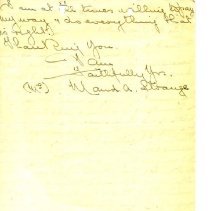 I am at all times willing to pay
my way & do everything that
is right.
Thanking You.
I am
Faithfully Yrs.
(Ms) Maud A. Strange